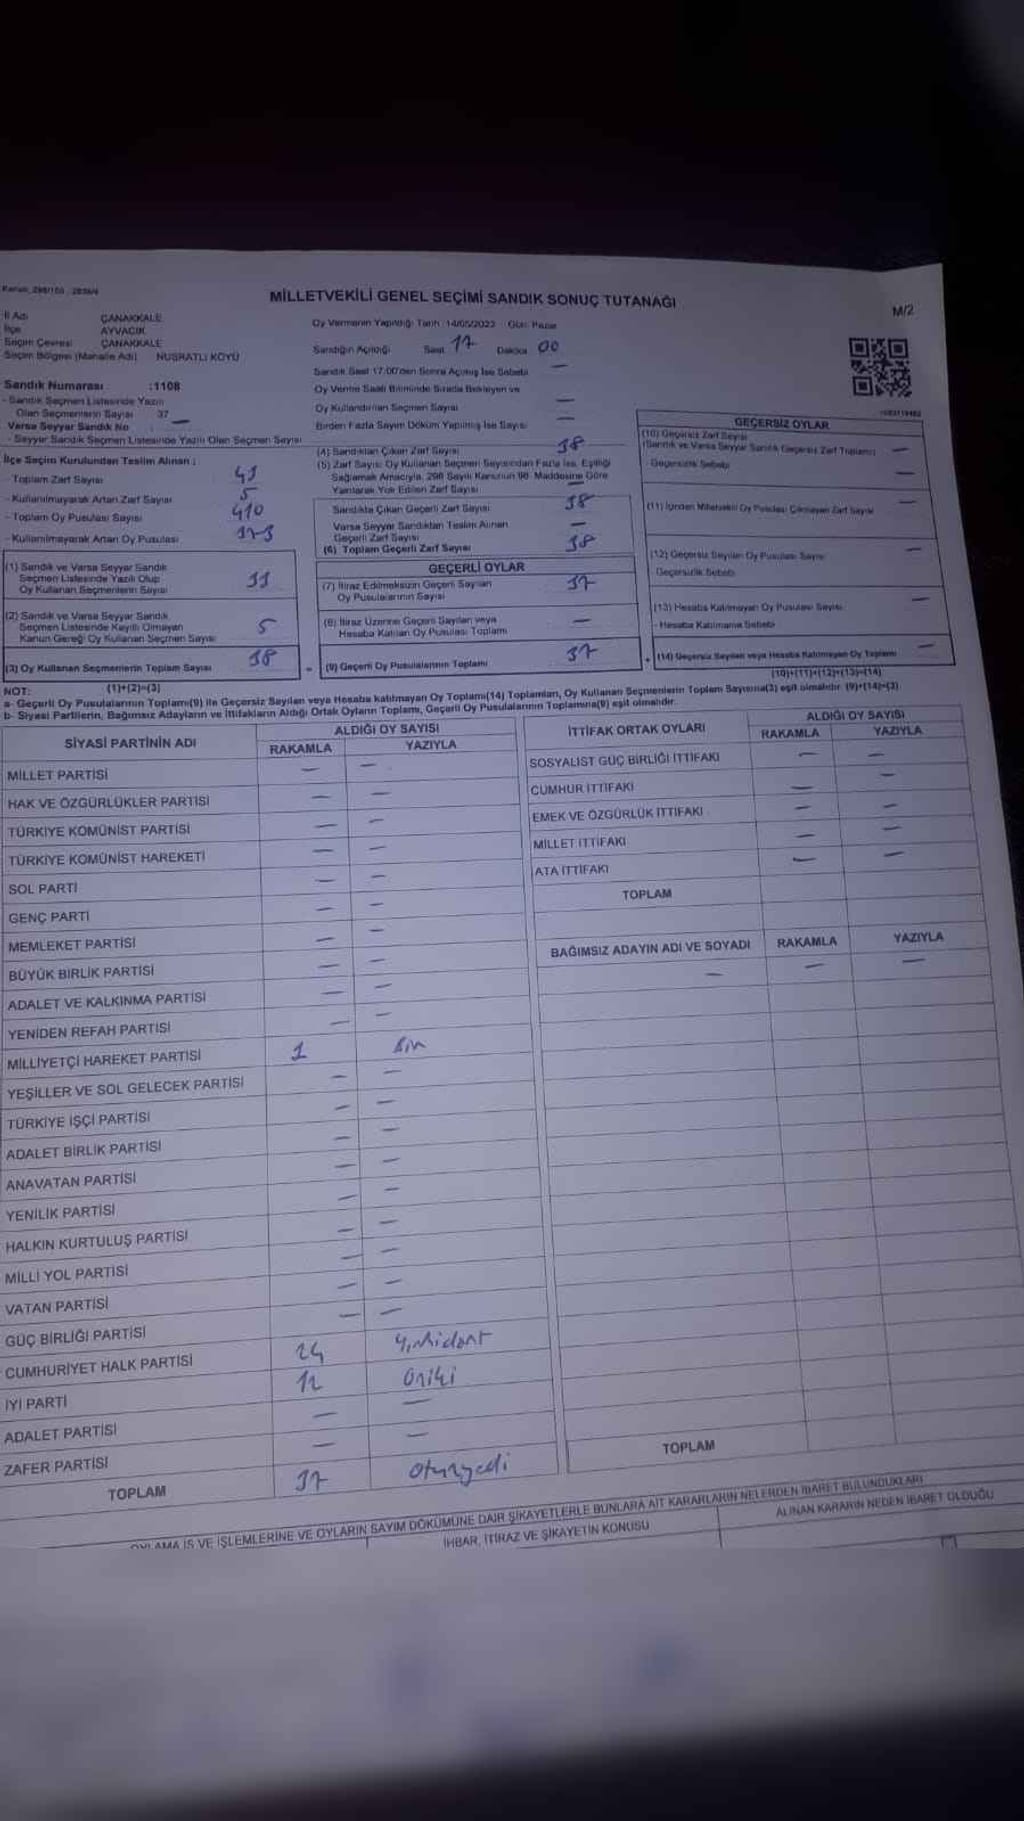 MİLLETVEKİLİ GENEL SEÇİMİ SANDIK SONUÇ TUTANAĞI
M/2
İl Adı ÇANAKKALE
İlçe AYVACIK
Seçim Çevresi ÇANAKKALE
Seçim Bölgesi (Mahalle Adı) NUSRATLI KÖYÜ
Oy Vermenin Yapıldığı Tarih :14/05/2023 Gün: Pazar
Sandığın Açıldığı Saat 17 Dakika 00
Sandık Saat 17:00'den Sonra Açılmış İse Sebebi —
Oy Verme Saati Bitiminde Sırada Bekleyen ve
Oy Kullandırılan Seçmen Sayısı —
Birden Fazla Sayım Döküm Yapılmış İse Sayısı —
Sandık Numarası :1108
- Sandık Seçmen Listesinde Yazılı
Olan Seçmenlerin Sayısı 37
Varsa Seyyar Sandık No —
- Seyyar Sandık Seçmen Listesinde Yazılı Olan Seçmen Sayısı
İlçe Seçim Kurulundan Teslim Alınan :
- Toplam Zarf Sayısı
- Kullanılmayarak Artan Zarf Sayısı 5
- Toplam Oy Pusulası Sayısı 410
- Kullanılmayarak Artan Oy Pusulası
(1) Sandık ve Varsa Seyyar Sandık
Seçmen Listesinde Yazılı Olup
Oy Kullanan Seçmenlerin Sayısı 33
(2) Sandık ve Varsa Seyyar Sandık
Seçmen Listesinde Kayıtlı Olmayan
Kanun Gereği Oy Kullanan Seçmen Sayısı 5
(3) Oy Kullanan Seçmenlerin Toplam Sayısı 38
(1)+(2)=(3)
(4) Sandıktan Çıkan Zarf Sayısı 38
(5) Zarf Sayısı Oy Kullanan Seçmen Sayısından Fazla İse, Eşitliği
Sağlamak Amacıyla, 298 Sayılı Kanunun 98. Maddesine Göre
Yakılarak Yok Edilen Zarf Sayısı —
Sandıkta Çıkan Geçerli Zarf Sayısı 38
Varsa Seyyar Sandıktan Teslim Alınan
Geçerli Zarf Sayısı —
(6) Toplam Geçerli Zarf Sayısı 38
GEÇERLİ OYLAR
(7) İtiraz Edilmeksizin Geçerli Sayılan
Oy Pusulalarının Sayısı 37
(8) İtiraz Üzerine Geçerli Sayılan veya
Hesaba Katılan Oy Pusulası Toplamı —
= (9) Geçerli Oy Pusulalarının Toplamı 37
GEÇERSİZ OYLAR
(10) Geçersiz Zarf Sayısı
(Sandık ve Varsa Seyyar Sandık Geçersiz Zarf Toplamı) —
- Geçersizlik Sebebi —
(11) İçinden Milletvekili Oy Pusulası Çıkmayan Zarf Sayısı —
(12) Geçersiz Sayılan Oy Pusulası Sayısı —
- Geçersizlik Sebebi
(13) Hesaba Katılmayan Oy Pusulası Sayısı —
- Hesaba Katılmama Sebebi
+ (14) Geçersiz Sayılan veya Hesaba Katılmayan Oy Toplamı —
(10)+(11)+(12)+(13)=(14)
NOT:
a- Geçerli Oy Pusulalarının Toplamı(9) ile Geçersiz Sayılan veya Hesaba katılmayan Oy Toplamı(14) Toplamları, Oy Kullanan Seçmenlerin Toplam Sayısına(3) eşit olmalıdır. (9)+(14)=(3)
b- Siyasi Partilerin, Bağımsız Adayların ve İttifakların Aldığı Ortak Oyların Toplamı, Geçerli Oy Pusulalarının Toplamına(9) eşit olmalıdır.
SİYASİ PARTİNİN ADI ALDIĞI OY SAYISI
RAKAMLA YAZIYLA
MİLLET PARTİSİ — —
HAK VE ÖZGÜRLÜKLER PARTİSİ — —
TÜRKİYE KOMÜNİST PARTİSİ — —
TÜRKİYE KOMÜNİST HAREKETİ — —
SOL PARTİ — —
GENÇ PARTİ — —
MEMLEKET PARTİSİ — —
BÜYÜK BİRLİK PARTİSİ — —
ADALET VE KALKINMA PARTİSİ — —
YENİDEN REFAH PARTİSİ — —
MİLLİYETÇİ HAREKET PARTİSİ 1 Bir
YEŞİLLER VE SOL GELECEK PARTİSİ — —
TÜRKİYE İŞÇİ PARTİSİ — —
ADALET BİRLİK PARTİSİ — —
ANAVATAN PARTİSİ — —
YENİLİK PARTİSİ — —
HALKIN KURTULUŞ PARTİSİ — —
MİLLİ YOL PARTİSİ — —
VATAN PARTİSİ — —
GÜÇ BİRLİĞİ PARTİSİ — —
CUMHURİYET HALK PARTİSİ 24 Yirmidört
İYİ PARTİ 12 Oniki
ADALET PARTİSİ — —
ZAFER PARTİSİ — —
TOPLAM 37 Otuzyedi
İTTİFAK ORTAK OYLARI ALDIĞI OY SAYISI
RAKAMLA YAZIYLA
SOSYALİST GÜÇ BİRLİĞİ İTTİFAKI — —
CUMHUR İTTİFAKI — —
EMEK VE ÖZGÜRLÜK İTTİFAKI — —
MİLLET İTTİFAKI — —
ATA İTTİFAKI — —
TOPLAM
BAĞIMSIZ ADAYIN ADI VE SOYADI RAKAMLA YAZIYLA
— — —
TOPLAM
İŞ VE İŞLEMLERİNE VE OYLARIN SAYIM DÖKÜMÜNE DAİR ŞİKAYETLERLE BUNLARA AİT KARARLARIN NELERDEN İBARET BULUNDUKLARI
İHBAR, İTİRAZ VE ŞİKAYETİN KONUSU
ALINAN KARARIN NEDEN İBARET OLDUĞU